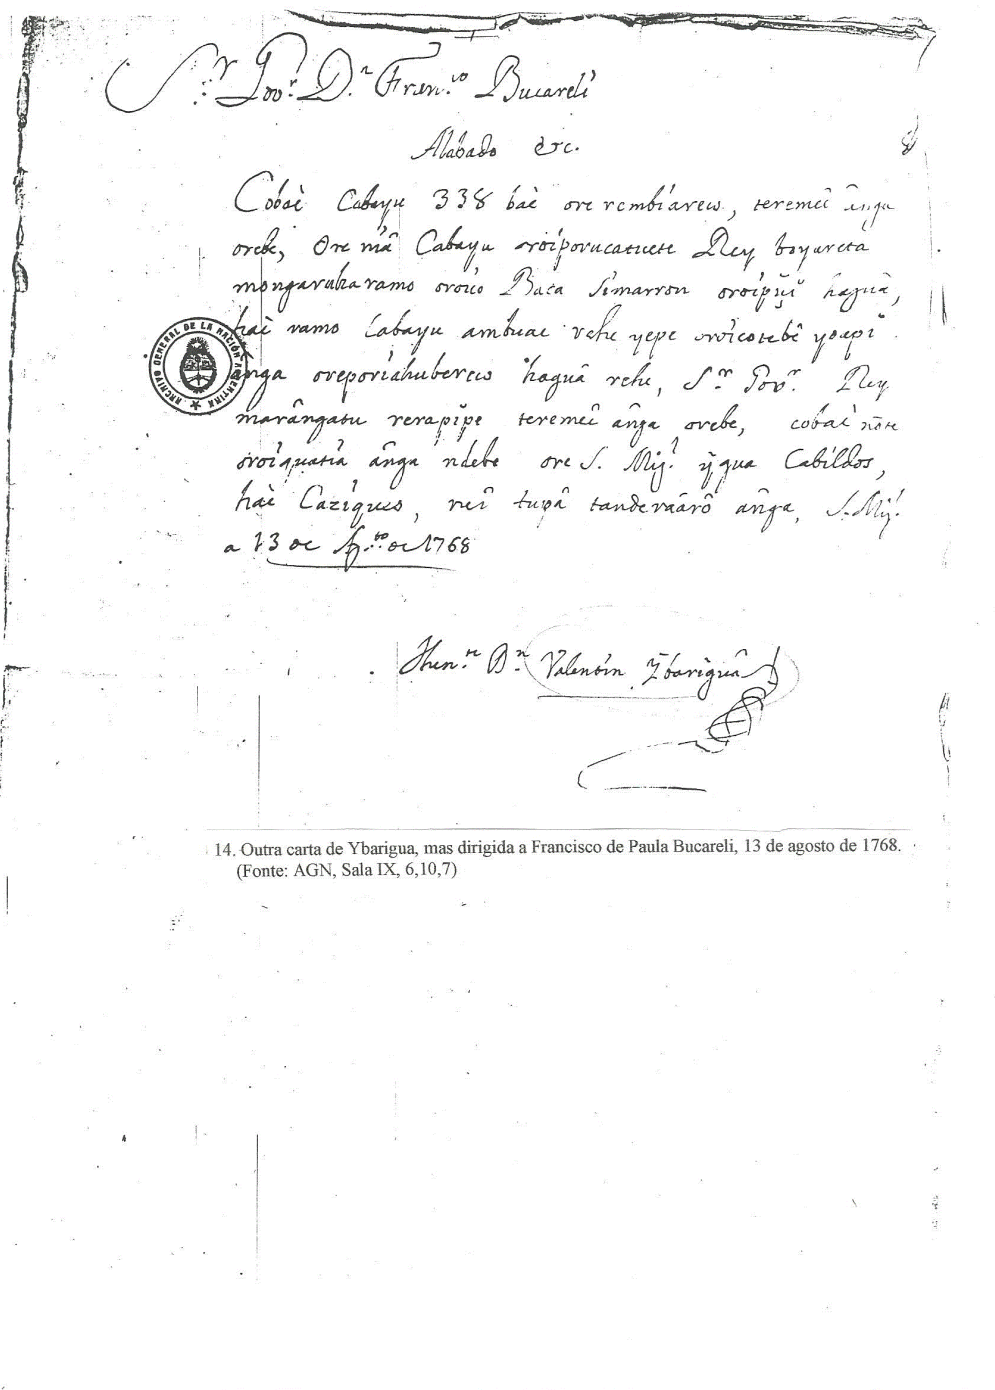 S.ʳ Gov.ʳ D.ⁿ Fran.ᶜᵒ Bucareli
Alabado &c.
Cobaè Cabayu 338 baè ore rembiareco, teremeê ânga
orebe, Ore niâ Cabayu oroiporucatuete Rey boyareta
mongaruharamo oroico Baca Simarron oroipĭĭ haguâ,
haè ramo Cabayu ambuae rehe yepe oroicotebê yoapĭ
ânga oreporiahubereco haguâ rehe, S.ʳ Gov.ʳ Rey
marângatu rerapĭpe teremeê ânga orebe, cobaè ñote
oroiquatia ânga ndebe ore S. Mig.ˡ ĭgua Cabildos,
haè Caziques, neî tupâ tanderâârô ânga, S. Mig.ˡ
a 13 de Ag.ᵗᵒ de 1768
Then.ᵗᵉ D.ⁿ Valentin Ybariguâ
ARCHIVO GENERAL DE LA NACIÓN ARGENTINA
14. Outra carta de Ybarigua, mas dirigida a Francisco de Paula Bucareli, 13 de agosto de 1768.
(Fonte: AGN, Sala IX, 6,10,7)